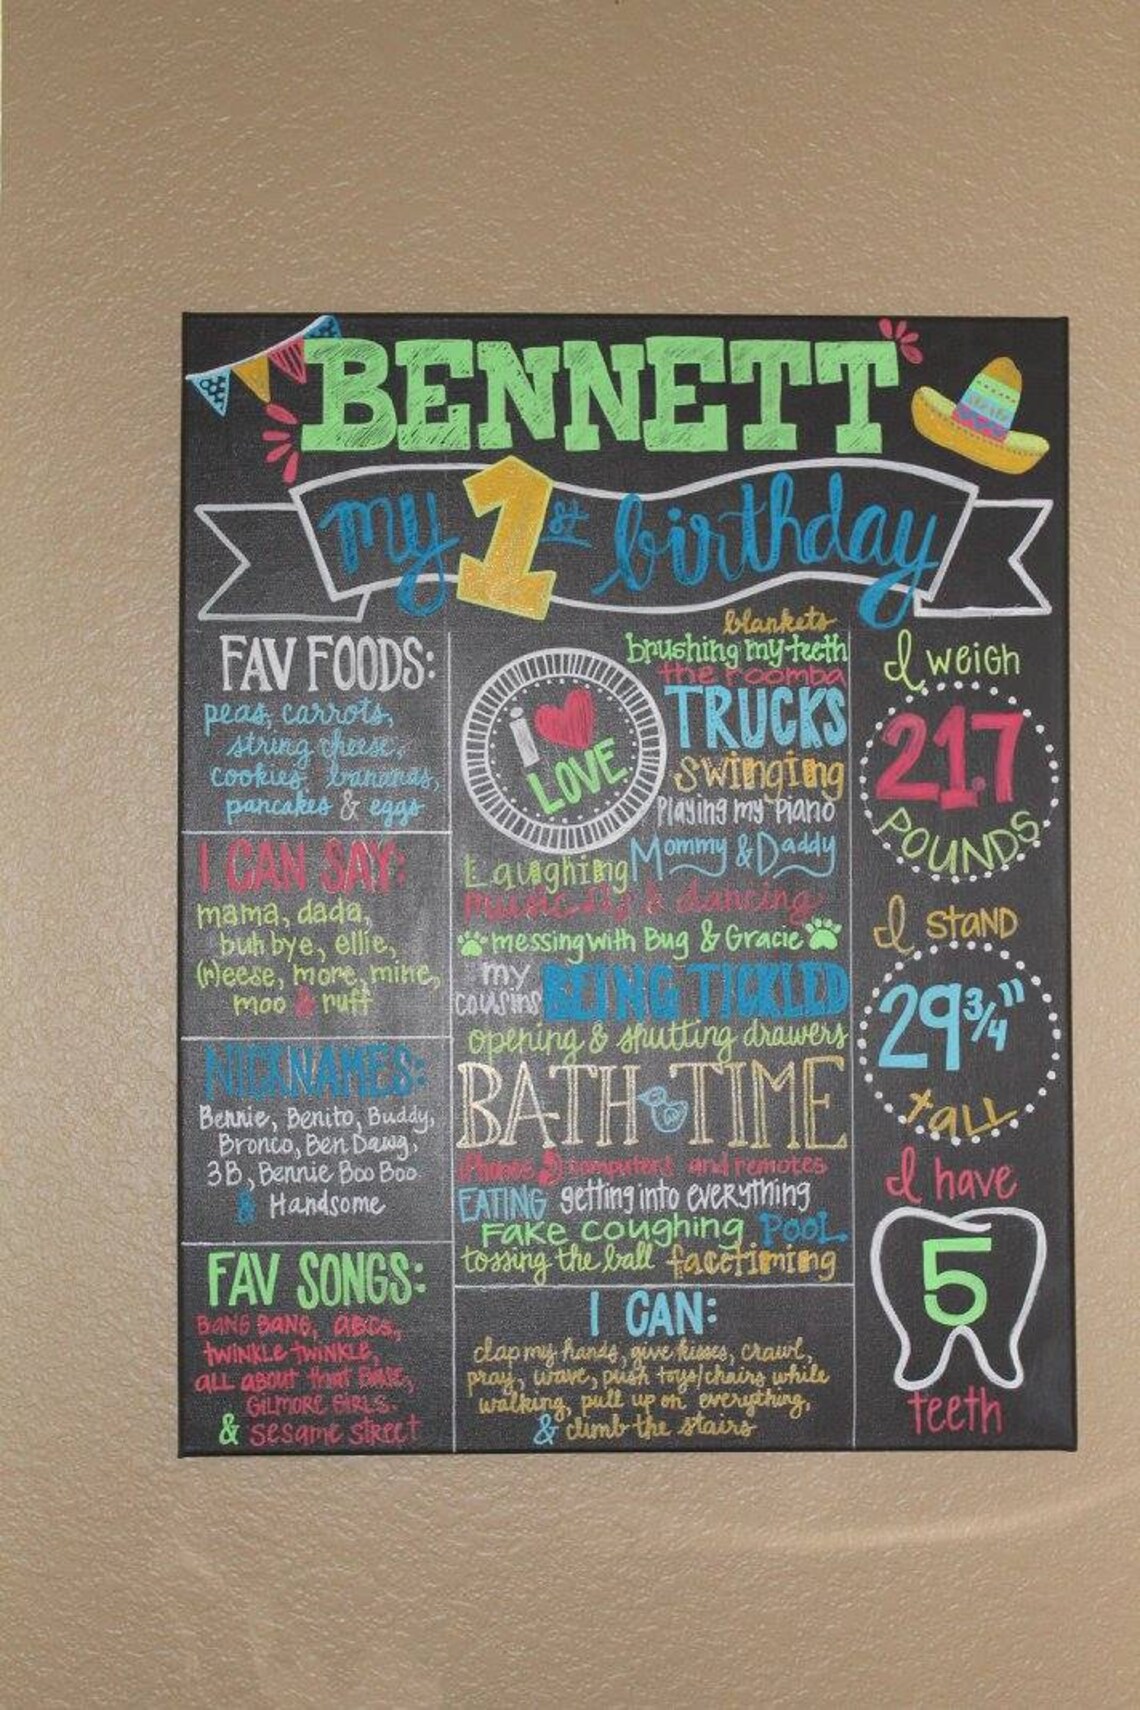 BENNETT
my 1st birthday
FAV FOODS:
peas, carrots,
string cheese,
cookies, bananas,
pancakes & eggs
I CAN SAY:
mama, dada,
buh bye, ellie,
(n)eese, more, mine,
moo & ruff
NICKNAMES:
Bennie, Benito, Buddy,
Bronco, Ben Dawg,
3B, Bennie Boo Boo
& Handsome
FAV SONGS:
BANG BANG, ABCs,
TWINKLE TWINKLE,
ALL ABOUT that BASE,
GILMORE GIRLS,
& sesame street
i LOVE
blankets
brushing my teeth
the roomba
TRUCKS
swinging
Playing my piano
Mommy & Daddy
Laughing
music & dancing
messing with Bug & Gracie
my cousins
BEING TICKLED
opening & shutting drawers
BATH TIME
iPhones computers and remotes
EATING getting into everything
Fake coughing POOL
tossing the ball facetiming
I CAN:
clap my hands, give kisses, crawl,
pray, wave, push toys/chairs while
walking, pull up on everything,
& climb the stairs
I weigh
21.7
POUNDS
I STAND
29 3/4"
tall
I have
5
teeth